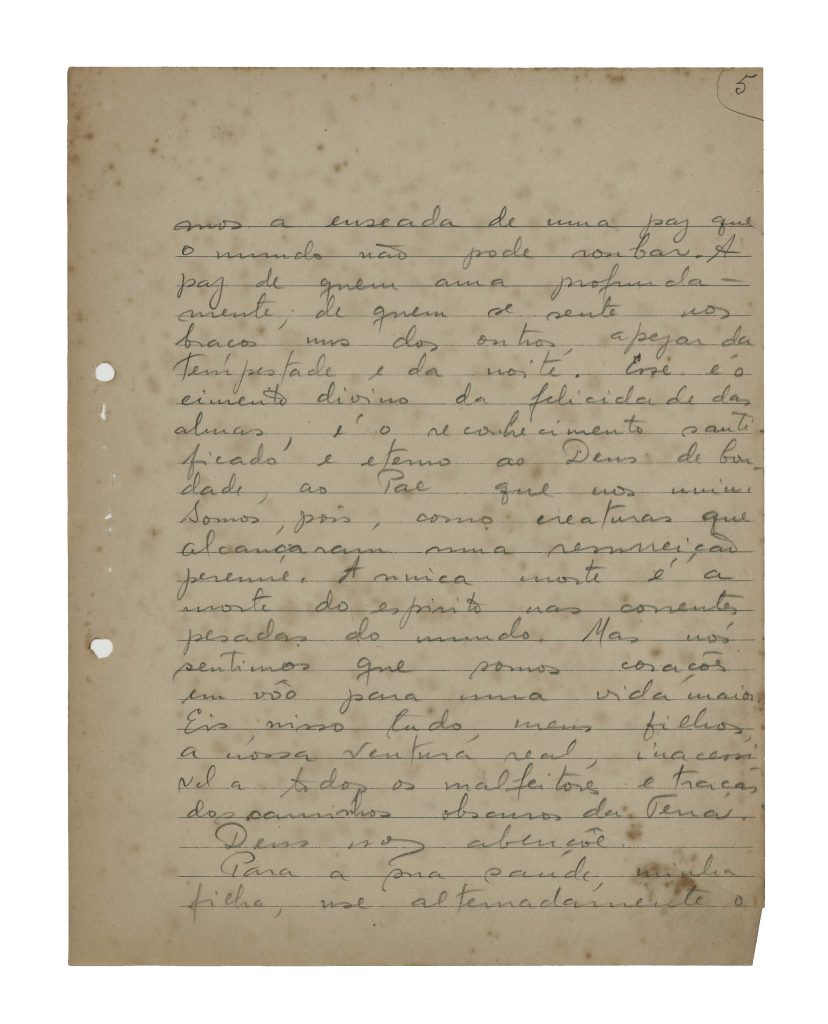 5
mos a enseada de uma paz que
o mundo não pode roubar. A
paz de quem ama profunda-
mente, de quem se sente nos
braços uns dos outros, apezar da
tempestade e da noite. Esse é o
cimento divino da felicidade das
almas, é o reconhecimento santi-
ficado e eterno ao Deus de bon-
dade, ao Pae que nos uniu.
Somos, pois, como creaturas que
alcançaram uma resurreição
perenne. A unica morte é a
morte do espirito nas correntes
pesadas do mundo. Mas nós
sentimos que somos corações
em vôo para uma vida maior.
Eis, nisso tudo, meus filhos,
a nossa ventura real, inacessi-
vel a todos os malfeitores e traças
dos caminhos obscuros da Terra.
Deus nos abençôe.
Para a sua saúde, minha
filha, use alternadamente o